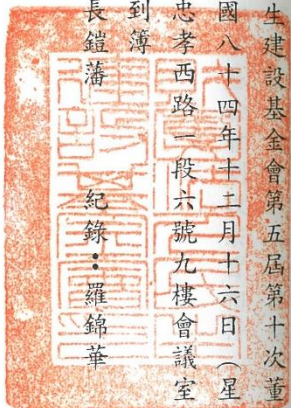 生建設基金會第五屆第十次董
國八十四年十二月十六日（星
忠孝西路一段六號九樓會議室
到簿
長鎧藩　　紀錄：羅錦華